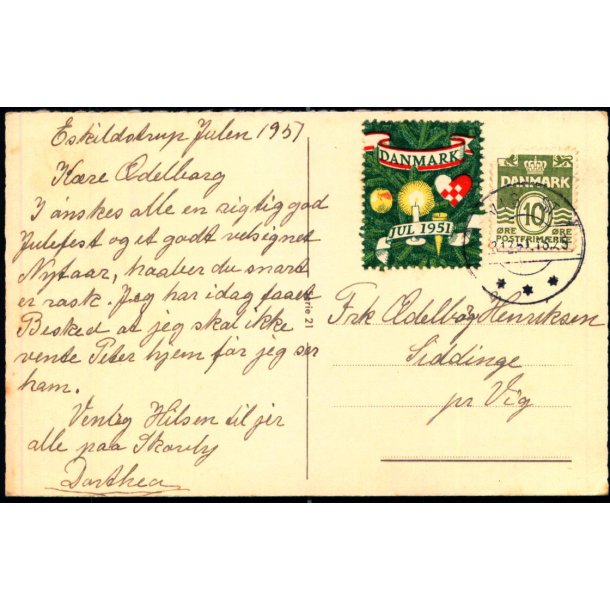 Eskildstrup Julen 1951
Kære Odelborg
I ønskes alle en rigtig god
Julefest og et godt velsignet
Nytaar, haaber du snart
er rask. Jeg har idag faaet
Besked at jeg skal ikke
vente Peter hjem før jeg ser
ham.
Venlig Hilsen til jer
alle paa Skovly
Dorthea
Serie 21
DANMARK
JUL 1951
DANMARK
10
ØRE ØRE
POSTFRIMÆRKE
Frk Odelbog Henriksen
Siddinge
pr Vig